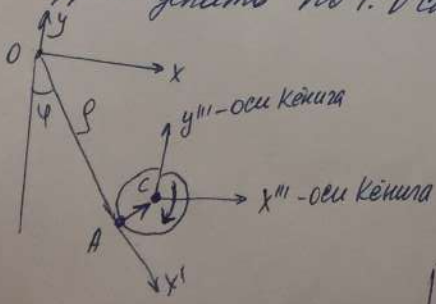 y
O
x
φ
ρ
y''' - оси Кёнига
C
x''' - оси Кёнига
A
x'